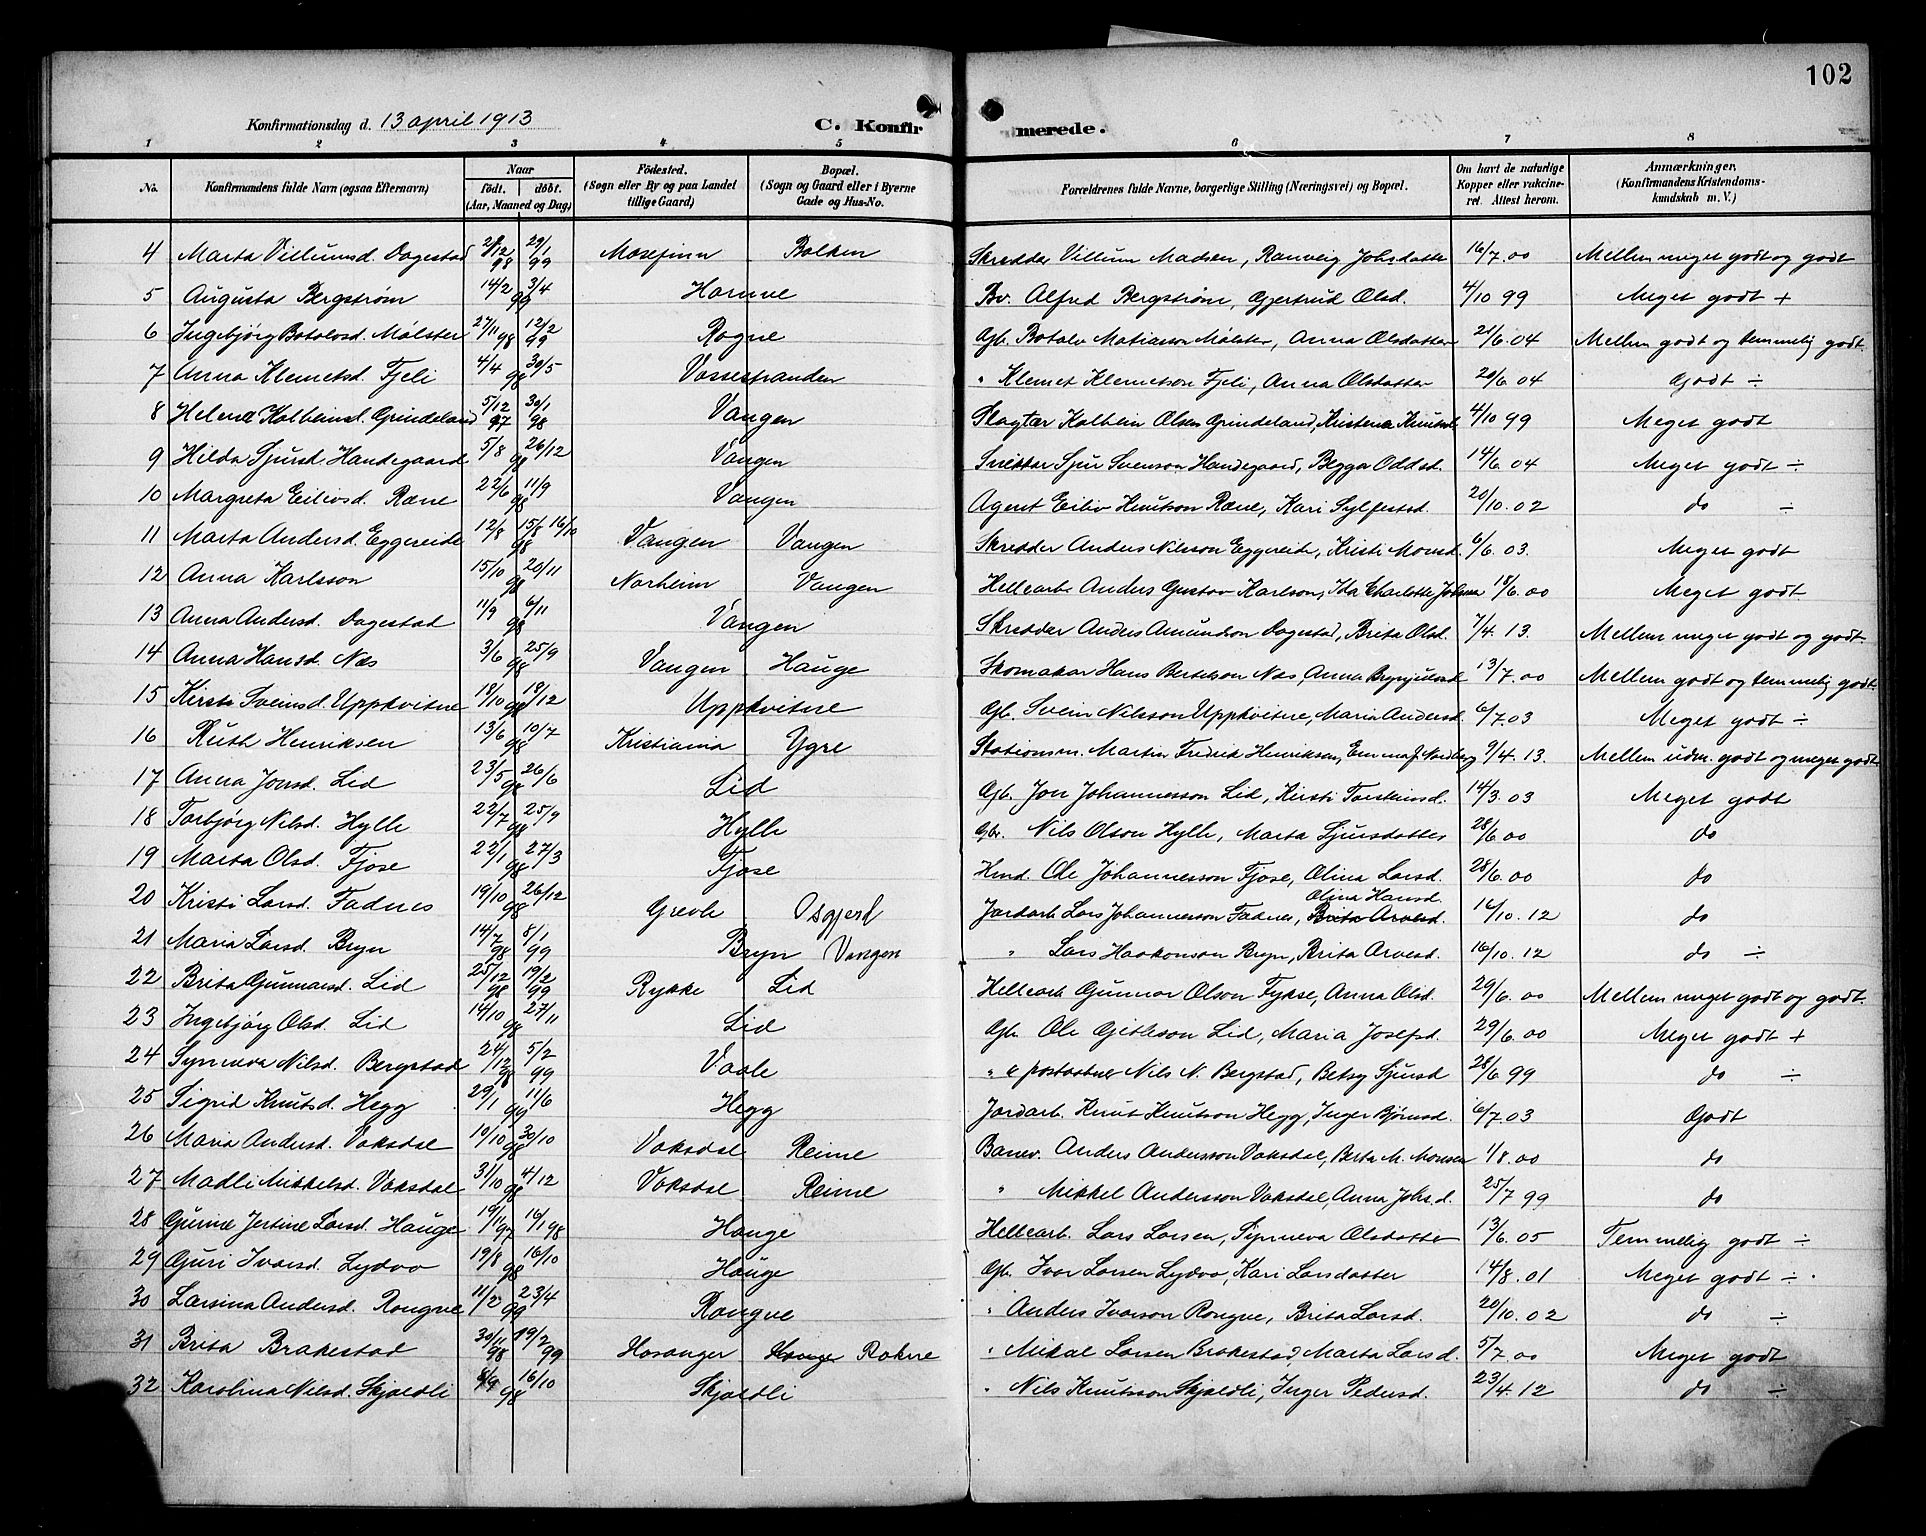 102
Konfirmationsdag d. 13 april 1913 C. Konfirmerede.
1 2 3 4 5 6 7 8
No. Konfirmandens fulde Navn (ogsaa Efternavn) Naar födt. döbt. (Aar, Maaned og Dag) Födested. (Sogn eller By og paa Landet tillige Gaard) Bopæl. (Sogn og Gaard eller i Byerne Gade og Hus-No. Forældrenes fulde Navne, borgerlige Stilling (Næringsvei) og Bopæl. Om havt de naturlige Kopper eller vakcineret. Attest herom. Anmærkninger. (Konfirmandens Kristendomskundskab m. V.)
4 Marta Villumsd. Dagestad 21/12 98 29/1 99 Mosefinn Balken Skredder Villum Madsen, Ranveig Johsdatter 16/7.00 Mellem meget godt og godt
5 Augusta Bergstrøm 14/2 3/4 99 Hamve Bv. Alfred Bergstrøm, Gjertrud Olsd. 4/10 99 Meget godt +
6 Ingebjørg Botolvsd. Mølster 27/11 98 12/2 99 Rogne Gb. Botolv Matiasson Mølster, Anna Olsdatter 21/6.04 Mellem godt og temmelig godt.
7 Anna Klemetsd. Fjeli 4/4 98 30/5 Vossestranden " Klemet Klemetson Fjeli, Anna Olsdatter 20/6 04 Godt ÷
8 Helene Kolbeinsd. Grindeland 5/12 97 30/1 98 Vangen Slagtar Kolbein Olsen Grindeland, Kristena Knutsd. 4/10 99 Meget godt
9 Hilda Sjursd. Handegaard 5/8 98 26/12 Vangen Snikkar Sjur Svenson Handegaard, Begga Oddsd. 14/6.04 Meget godt ÷
10 Margreta Eilivsd. Ræne 22/6 98 11/9 Vangen Agent Eiliv Knutson Ræne, Kari Sylfestsd. 20/10.02 do ÷
11 Marta Andersd. Eggereide 12/8 98 15/8 16/10 Vangen Vangen Skredder Anders Nilsson Eggereide, Kristi Monsd. 6/6 03. Meget godt
12 Anna Karlsson 15/10 98 20/11 Norheim Vangen Hellearb. Anders Gustav Karlson, Ida Charlotte 18/6.00 Meget godt
13 Anna Andersd. Dagestad 11/9 98 6/11 Vangen Skredder Anders Amundson Dagestad, Brita Olsd. 7/4.13. Mellem meget godt og godt.
14 Anna Hansd. Næs 3/6 98 25/9 Vangen Hauge Skomakar Hans Bertelson Næs, Anna Brynjulvsd 13/7.00 Mellem godt og temmelig godt.
15 Kirsti Sveinsd. Uppkvitne 18/10 98 18/12 Uppkvitne Gb. Svein Nilsson Uppkvitne, Maria Andersd. 6/7.03 Meget godt ÷
16 Ruth Henriksen 13/6 98 10/7 Kristiania Ygre Stationsm. Martin Fredrik Henriksen, Emma J. Nordberg 9/4.13. Mellem udm. godt og meget godt.
17 Anna Jonsd. Lid 23/5 98 26/6 Lid Gb. Jon Johannesson Lid, Kirsti Torsteinsd. 14/3.03 Meget godt
18 Torbjørg Nilsd. Hylle 22/7 98 25/9 Hylle Gbr. Nils Olson Hylle, Marta Sjursdatter 28/6 00 do
19 Marta Olsd. Fjose 22/1 98 27/3 Fjose Hmd. Ole Johannesson Fjose, Olina Larsd. 28/6.00 do
20 Kristi Larsd. Fadnes 19/10 98 26/12 Grevle Osgjerd Jordarb. Lars Johannesson Fadnes, Brita Arvesd. Olina Hansd. 16/10.12 do
21 Maria Larsd. Bryn 14/7 98 8/1 99 Bryn Vangen " Lars Haakonson Bryn, Brita Arvesd. 16/10.12 do ÷
22 Brita Gunnarsd. Lid 25/12 98 19/2 99 Rykke Lid Hellearb Gunnar Olson Fykse, Anna Olsd. 29/6.00 Mellem meget godt og godt.
23 Ingebjørg Olsd. Lid 14/10 98 27/11 Lid Gb. Ole Gitleson Lid, Maria Josefsd. 29/6.00 Meget godt +
24 Synneva Nilsd. Bergstad 24/12 98 5/2 99 Vaale " & postaabner Nils N. Bergstad, Betsy Sjursd 28/6 99 do ÷
25 Sigrid Knutsd. Hegg 29/1 99 11/6 Hegg Jordarb. Knut Knutson Hegg, Inger Bjørnsd. 6/7.03 Godt
26 Maria Andersd. Vaksdal 10/10 98 30/10 Vaksdal Reime Banev. Anders Andersson Vaksdal, Berta M. Monsen 1/8.00 do
27 Madli Mikkelsd. Vaksdal 31/10 98 4/12 Vaksdal Reime " Mikkel Andersson Vaksdal, Anna Johs.d. 25/7 99 do
28 Gurine Jertine Larsd. Hauge 19/11 97 16/1 98 Hauge Hellearb. Lars Larsen, Synneva Olsdatter 13/6.05 Temmelig godt ÷
29 Guri Ivarsd. Lydvo 19/8 98 16/10 Hauge Gb. Ivar Larsen Lydvo, Kari Larsdatter 14/8.01 Meget godt ÷.
30 Larsina Andersd. Rongve 11/2 99 23/4 Rongve " Anders Ivarson Rongve, Brita Larsd. 20/10.02 do ÷
31 Brita Brakestad 30/11 98 19/2 99 Hosanger Hauge Rokne " Mikal Larsen Brakestad, Marta Larsd. 5/7.00 Meget godt
32 Karolina Nilsd. Skjældli 8/9 98 16/10 Skjældli " Nils Knutsson Skjældli, Inger Pedersd. 23/4.12 do ÷